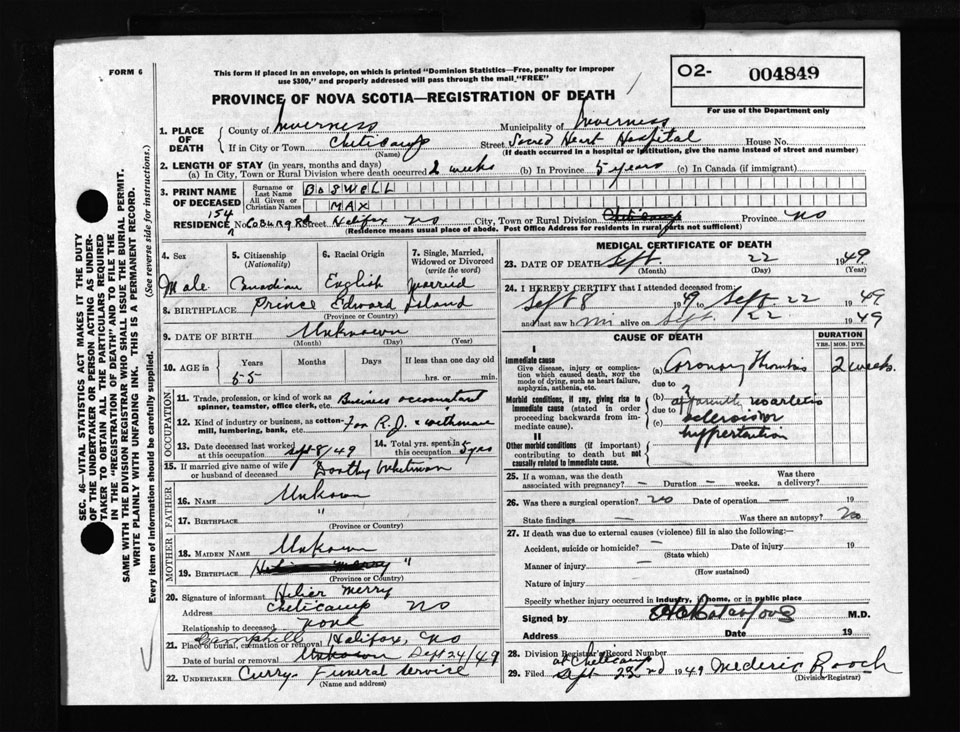 FORM 6
This form if placed in an envelope, on which is printed "Dominion Statistics—Free, penalty for improper
use $300," and properly addressed will pass through the mail "FREE"
O2- 004849
For use of the Department only
PROVINCE OF NOVA SCOTIA—REGISTRATION OF DEATH
SEC. 46—VITAL STATISTICS ACT MAKES IT THE DUTY
OF THE UNDERTAKER OR PERSON ACTING AS UNDER-
TAKER TO OBTAIN ALL THE PARTICULARS REQUIRED
IN THE "REGISTRATION OF DEATH" AND TO FILE THE
SAME WITH THE DIVISION REGISTRAR WHO SHALL ISSUE THE BURIAL PERMIT.
WRITE PLAINLY WITH UNFADING INK. THIS IS A PERMANENT RECORD.
Every item of information should be carefully supplied. (See reverse side for instructions.)
1. PLACE OF DEATH County of Inverness Municipality of Inverness
If in City or Town Cheticamp (Name) Street Sacred Heart Hospital House No.
(If death occurred in a hospital or institution, give the name instead of street and number)
2. LENGTH OF STAY (in years, months and days)
(a) In City, Town or Rural Division where death occurred 2 weeks (b) In Province 5 years (c) In Canada (if immigrant)
3. PRINT NAME OF DECEASED Surname or Last Name BOSWELL
All Given or Christian Names MAX
RESIDENCE No. 154 Coburg Rd Street Halifax NS City, Town or Rural Division Cheticamp Province NS
(Residence means usual place of abode. Post Office Address for residents in rural parts not sufficient)
4. Sex Male
5. Citizenship (Nationality) Canadian
6. Racial Origin English
7. Single, Married, Widowed or Divorced (write the word) married
8. BIRTHPLACE Prince Edward Island
(Province or Country)
9. DATE OF BIRTH Unknown
(Month) (Day) (Year)
10. AGE in Years Months Days If less than one day old
55 hrs. or min.
OCCUPATION
11. Trade, profession, or kind of work as spinner, teamster, office clerk, etc. Business accountant
12. Kind of industry or business, as cotton-mill, lumbering, bank, etc. For R.J.
13. Date deceased last worked at this occupation Sept 8/49
14. Total yrs. spent in this occupation 5 yrs
15. If married give name of wife or husband of deceased Dorothy
FATHER
16. NAME Unknown
17. BIRTHPLACE "
(Province or Country)
MOTHER
18. MAIDEN NAME Unknown
19. BIRTHPLACE "
(Province or Country)
20. Signature of informant Hilier Merry
Address Cheticamp NS
Relationship to deceased none
21. Place of burial, cremation or removal Halifax, NS
Date of burial or removal Unknown Sept 24/49
22. UNDERTAKER Curry Funeral Service
(Name and address)
MEDICAL CERTIFICATE OF DEATH
23. DATE OF DEATH Sept. 22 1949
(Month) (Day) (Year)
24. I HEREBY CERTIFY that I attended deceased from
Sept 8 1949 to Sept. 22 1949
and last saw him alive on Sept. 22 1949
CAUSE OF DEATH DURATION
YRS. MOS. DYS.
I
Immediate cause
Give disease, injury or complication which caused death, NOT the mode of dying, such as heart failure, asphyxia, asthenia, etc.
(a) Coronary Thrombosis 2 weeks
due to
Morbid conditions, if any, giving rise to immediate cause (stated in order proceeding backwards from immediate cause).
(b)
due to
(c) sclerosis or
hypertention
II
Other morbid conditions (if important) contributing to death but not causally related to immediate cause.
25. If a woman, was the death associated with pregnancy? — Duration — weeks. Was there a delivery?
26. Was there a surgical operation? no Date of operation — 19
State findings — Was there an autopsy? no
27. If death was due to external causes (violence) fill in also the following:—
Accident, suicide or homicide? — Date of injury 19
(State which)
Manner of injury —
(How sustained)
Nature of injury
Specify whether injury occurred in industry, in home, or in public place
Signed by M.D.
Address Date 19
28. Division Registrar's Record Number
29. Filed at Cheticamp Sept 23rd 1949 Mederic Roach
(Division Registrar)